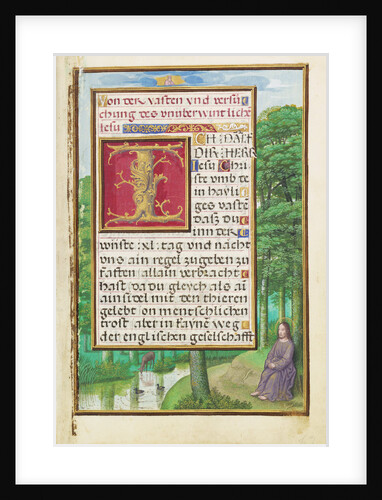 Von der vasten vnd versu
chung des vnuberwintliche
iesu
ICH DALT
DIR HERR
Iesu Chri
ste vmb de
in hayli
ges vaste
dasz du
inn der
wuste .xl. tag vnd nacht
vns ain regel zugeben zu
fasten allain verbracht
hast da du gleych als ai
ainsidel mit den thieren
gelebt on mentschlichen
trost aber in kayne weg
der englischen geselschafft